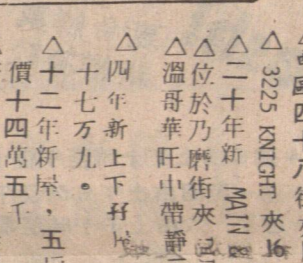 四十八街
△ 3225 KNIGHT 夾 16
△二十年新 MAIN
△位於乃磨街夾
△溫哥華旺中帶靜
△四年新上下
十七万九。
△十二年新屋，五
價十四萬五千